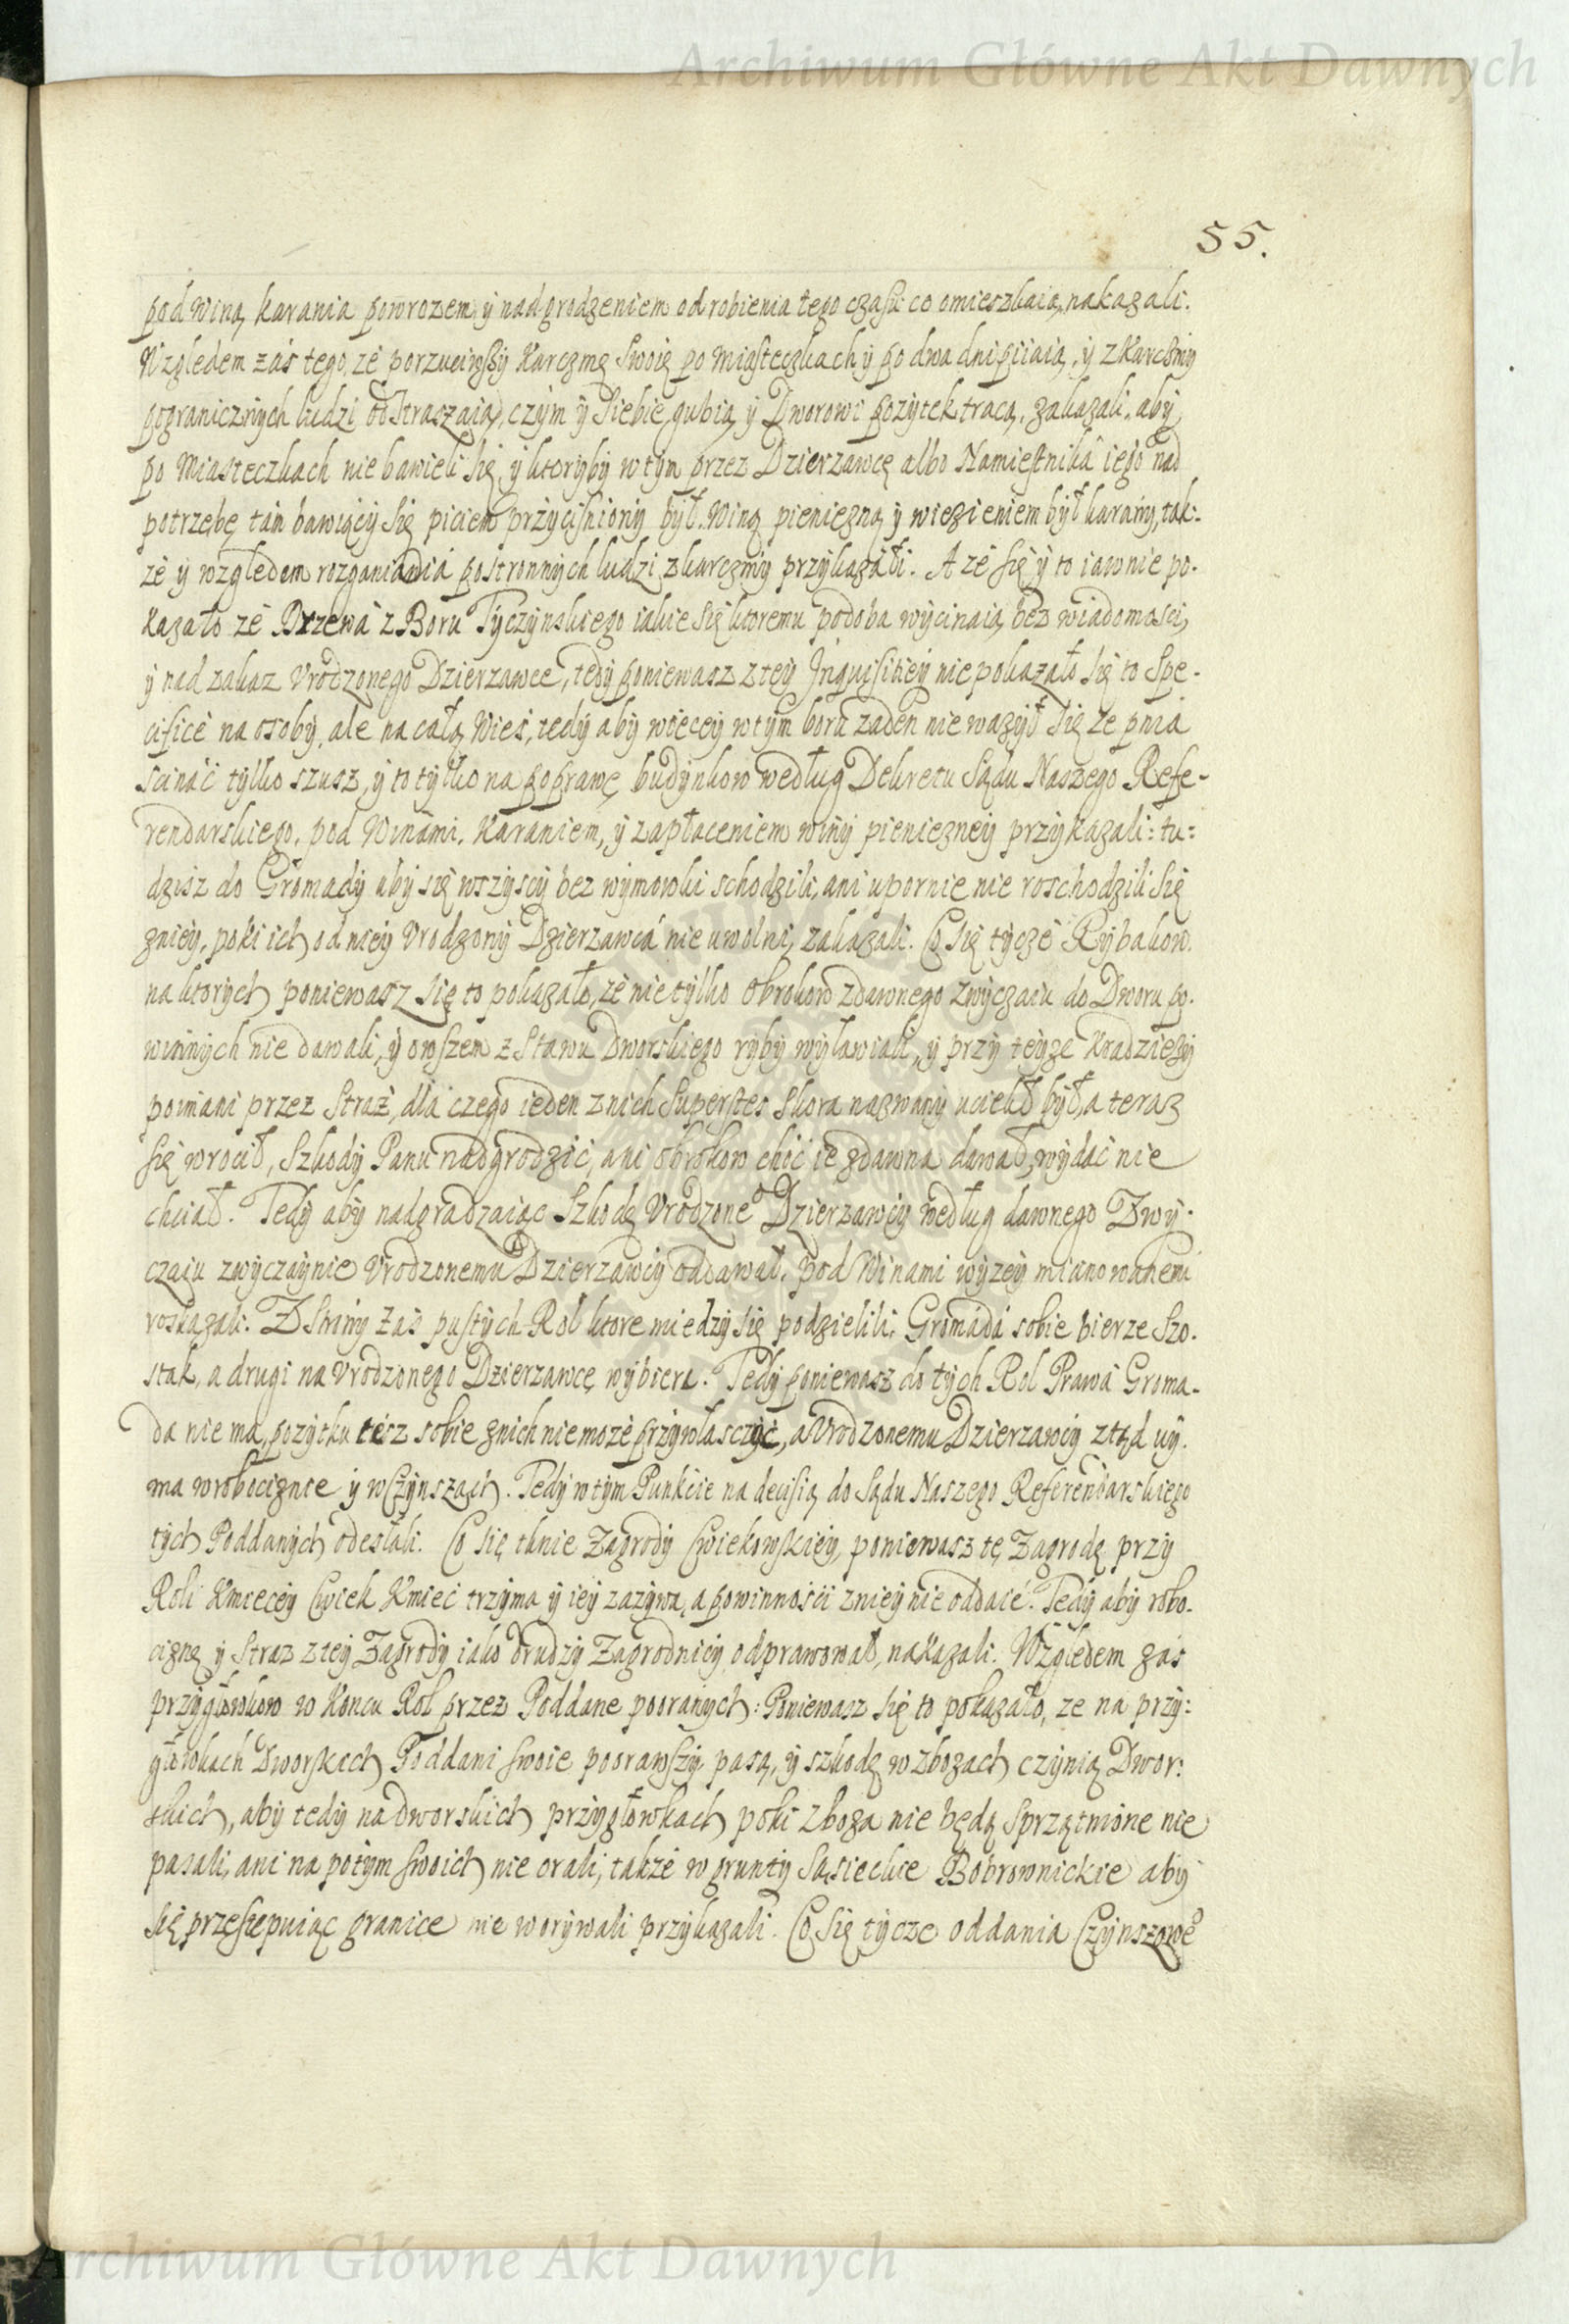 Archiwum Główne Akt Dawnych
55.
pod winą karania powrozem, y nadgrodzeniem odrobienia tego czasu co omieszkaią, nakazali.
Względem zás tego, ze porzuciwszy Karczmę Swoię po Miasteczkach y po dwa dni piiaią, y z Karczmy
pogranicznych ludzi odstraszaią, czym y Siebie gubią y Dworowi pozytek tracą, zakazali, aby
po Miasteczkach nie bawieli się, y ktoryby w tym przez Dzierzawcę albo Namiestnika iego nad
potrzebę tam bawiący się piciem przyciśniony był, Winą pieniezną y wiezieniem był karany, tak:
ze y względem rozganiania postronnych ludzi z karczmy przykazali. A ze się y to iawnie po-
kazało ze Drzewa z Boru Tyczynskiego iakie się ktoremu podoba wycinaią, bez wiadomosci,
y nad zakaz Vrodzonego Dzierzawce, tedy poniewasz z tey Inquisitiey nie pokazało się to Spe-
cificè na osoby, ale na całą Wieś, tedy aby wiecey w tym boru zaden nie wazył się ze pnia
scinać tylko szusz, y to tylko na poprawę budynkow według Dekretu Sądu Naszego Refe-
rendarskiego, pod Winami, Karaniem, y zapłaceniem winy pieniezney przykazali: tu:
dzisz do Gromady aby się wszyscy bez wymowki schodzili, ani upornie nie roschodzili się
zniey, poki ich od niey Vrodzony Dzierzawca nie uwolni, zakazali. Co się tycze Rybakow.
na ktorych poniewasz się to pokazało, ze nie tylko obrokow zdawnego zwyczaiu do Dworu po-
winnych nie dawali, y owszem z Stawu Dworskiego ryby wyławiali, y przy teyze Kradziezy
poimani przez Straż, dla czego ieden z nich Superstes Skora nazwany uciekł był, a teraz
się wrocił, Szkody Panu nadgrodzić, ani obrokow choć ie zdawna dawał, wydać nie
chciał. Tedy aby nadgradzaiąc Szkodę Vrodzone⁰ Dzierzawcy według dawnego Zwy-
czaiu zwyczaynie Vrodzonemu Dzierzawcy oddawał, pod Winami wyzey mianowanemi
roskazali. Z Strony zas pustych Rol ktore miedzy się podzielili, Gromada sobie bierze Szo-
stak, a drugi na Vrodzonego Dzierzawcę wybiera. Tedy poniewasz do tych Rol Prawa Groma-
da nie ma, pozytku tesz sobie z nich nie moze przywłasczyć, a Vrodzonemu Dzierzawcy ztąd uy-
ma w robociznie y w Czynszach. Tedy w tym Punkcie na decisią do Sądu Naszego Referendarskiego
tych Poddanych odesłali. Co się tknie Zagrody Cwiekowskiey, poniewasz tę Zagrodę przy
Roli Kmiecey Cwiek Kmiec trzyma y iey zazywa, a powinnosci z niey nie oddaié. Tedy aby robo-
ciznę y Straz z tey Zagrody iako drudzy Zagrodnicy odprawował, nakazali. Względem zas
przygłowkow w Koncu Rol przez Poddane pooranych: Poniewasz się to pokazało, ze na przy:
głowkach Dworskich Poddani swoie poorawszy pasą, y szkodę w zbozach czynią Dwor:
skich, aby tedy na dworskich przygłowkach poki zboza nie będą Sprzątnione nie
pasali, ani na potym swoich nie orali, także w grunty Sąsieckie Bobrownickie aby
się przestępuiąc granice nie worywali przykazali. Co się tycze oddania Czynszowe⁰
Archiwum Główne Akt Dawnych